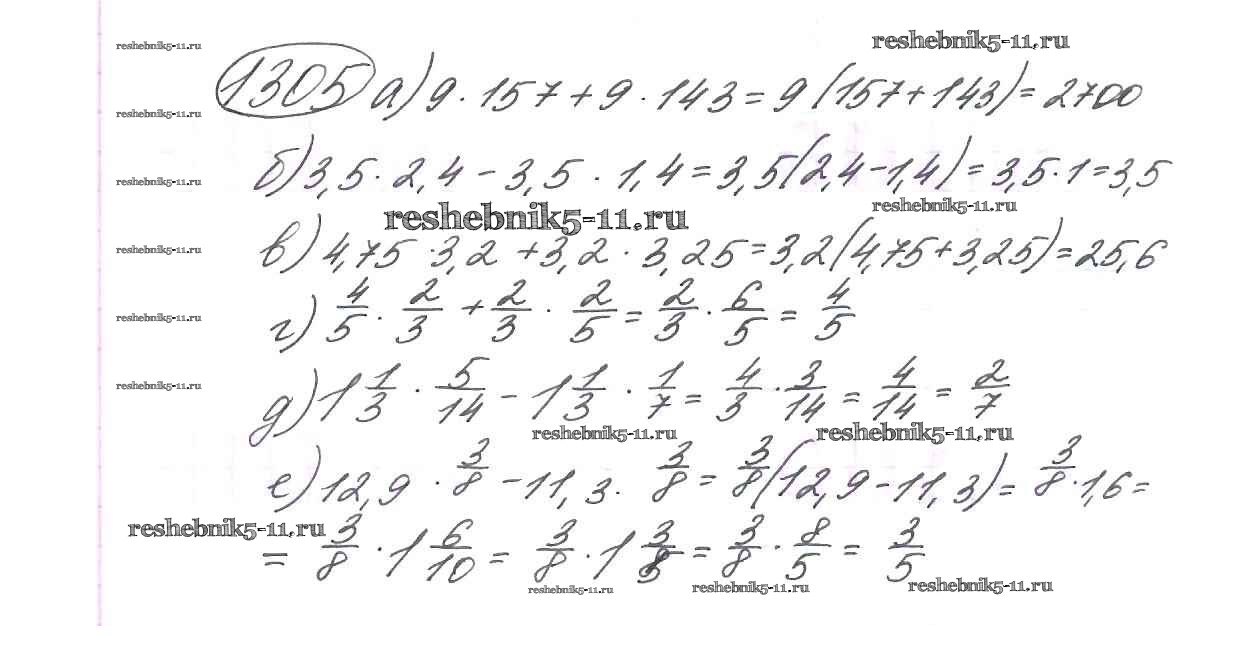 reshebnik5-11.ru
reshebnik5-11.ru
1305 а) 9 · 157 + 9 · 143 = 9 (157 + 143) = 2700
reshebnik5-11.ru
б) 3,5 · 2,4 − 3,5 · 1,4 = 3,5 (2,4 − 1,4) = 3,5 · 1 = 3,5
reshebnik5-11.ru
reshebnik5-11.ru
reshebnik5-11.ru
в) 4,75 · 3,2 + 3,2 · 3,25 = 3,2 (4,75 + 3,25) = 25,6
reshebnik5-11.ru
г) 4/5 · 2/3 + 2/3 · 2/5 = 2/3 · 6/5 = 4/5
reshebnik5-11.ru
д) 1 1/3 · 5/14 − 1 1/3 · 1/7 = 4/3 · 3/14 = 4/14 = 2/7
reshebnik5-11.ru
reshebnik5-11.ru
reshebnik5-11.ru
е) 12,9 · 3/8 − 11,3 · 3/8 = 3/8 (12,9 − 11,3) = 3/8 · 1,6 =
reshebnik5-11.ru
= 3/8 · 1 6/10 = 3/8 · 1 3/5 = 3/8 · 8/5 = 3/5
reshebnik5-11.ru
reshebnik5-11.ru
reshebnik5-11.ru